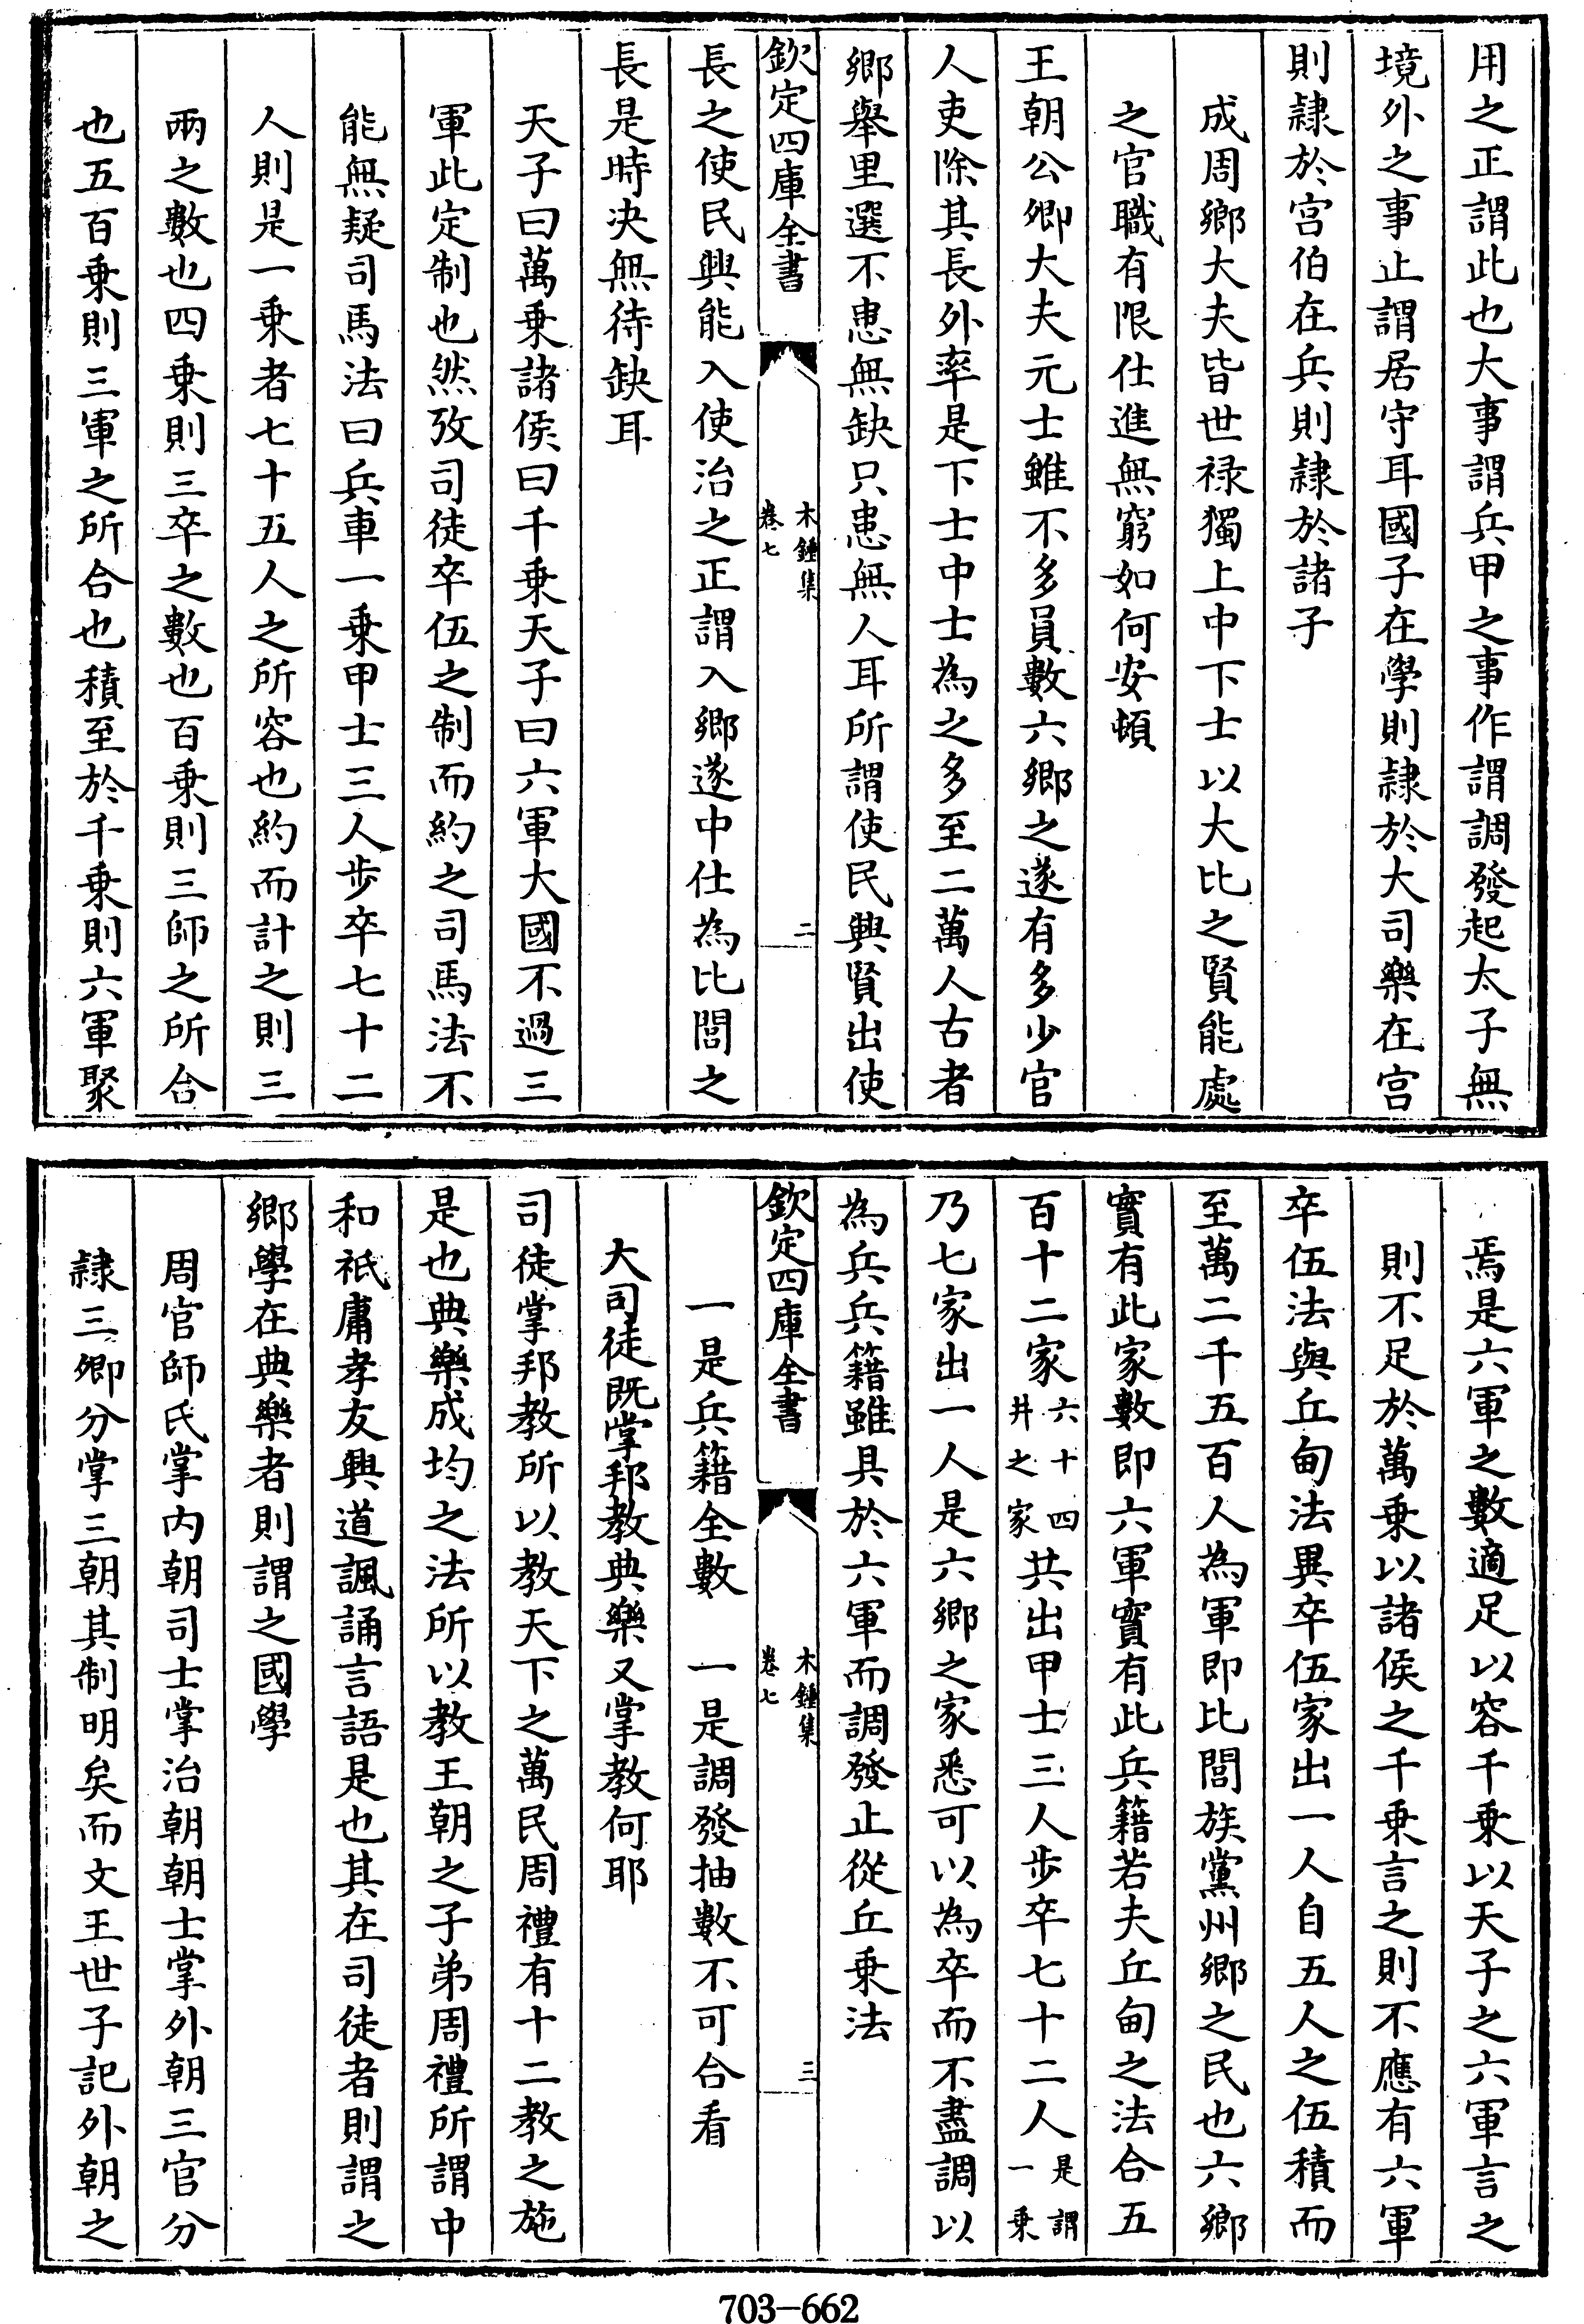 用之正謂此也大事謂兵甲之事作謂調發起太子無
境外之事止謂居守耳國子在學則隸於大司樂在宫
則隸於宫伯在兵則隸於諸子
成周鄉大夫皆世禄獨上中下士以大比之賢能處
之官職有限仕進無窮如何安頓
王朝公卿大夫元士雖不多員數六鄉之遂有多少官
人吏除其長外率是下士中士為之多至二萬人古者
鄉舉里選不患無缺只患無人耳所謂使民興賢出使
欽定四庫全書
木鍾集
卷七
二
長之使民興能入使治之正謂入鄉遂中仕為比閭之
長是時决無待缺耳
天子曰萬乗諸侯曰千乗天子曰六軍大國不過三
軍此定制也然攷司徒卒伍之制而約之司馬法不
能無疑司馬法曰兵車一乗甲士三人步卒七十二
人則是一乗者七十五人之所容也約而計之則三
兩之數也四乗則三卒之數也百乗則三師之所合
也五百乗則三軍之所合也積至於千乗則六軍聚
焉是六軍之數適足以容千乗以天子之六軍言之
則不足於萬乗以諸侯之千乗言之則不應有六軍
卒伍法與丘甸法異卒伍家出一人自五人之伍積而
至萬二千五百人為軍即比閭族黨州鄉之民也六鄉
實有此家數即六軍實有此兵籍若夫丘甸之法合五
百十二家六十四井之家共出甲士三人步卒七十二人是謂一乗
乃七家出一人是六鄉之家悉可以為卒而不盡調以
為兵兵籍雖具於六軍而調發止從丘乗法
欽定四庫全書
木鍾集
卷七
三
一是兵籍全數　一是調發抽數不可合看
大司徒既掌邦教典樂又掌教何耶
司徒掌邦教所以教天下之萬民周禮有十二教之施
是也典樂成均之法所以教王朝之子弟周禮所謂中
和祇庸孝友興道諷誦言語是也其在司徒者則謂之
鄉學在典樂者則謂之國學
周官師氏掌内朝司士掌治朝朝士掌外朝三官分
隸三卿分掌三朝其制明矣而文王世子記外朝之
703-662